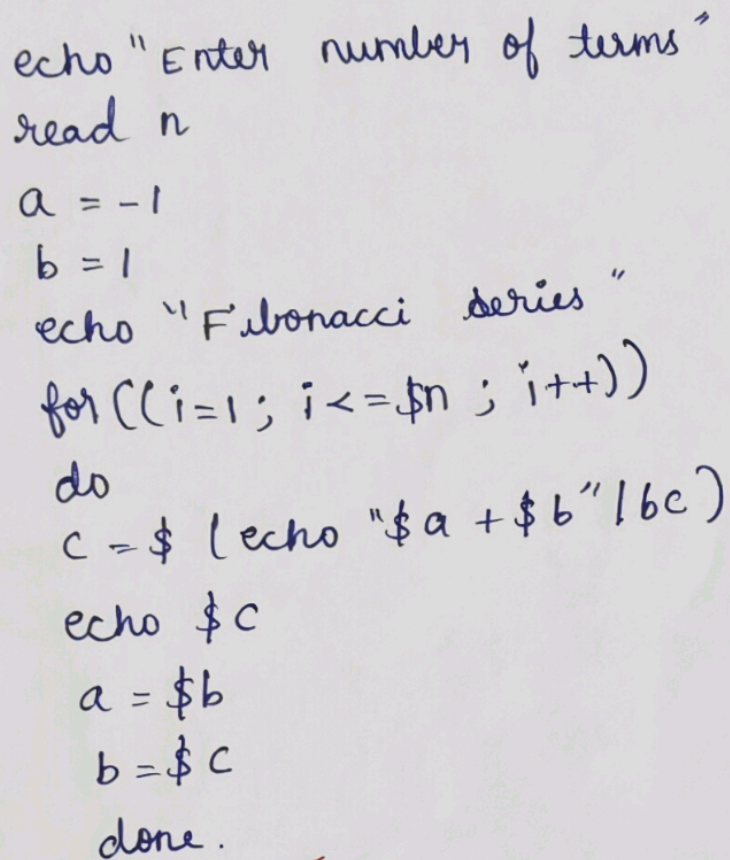 echo "Enter number of terms"
read n
a = -1
b = 1
echo "Fibonacci series"
for((i=1; i<=$n ; i++))
do
c = $ (echo "$a + $b" | bc)
echo $c
a = $b
b = $c
done.